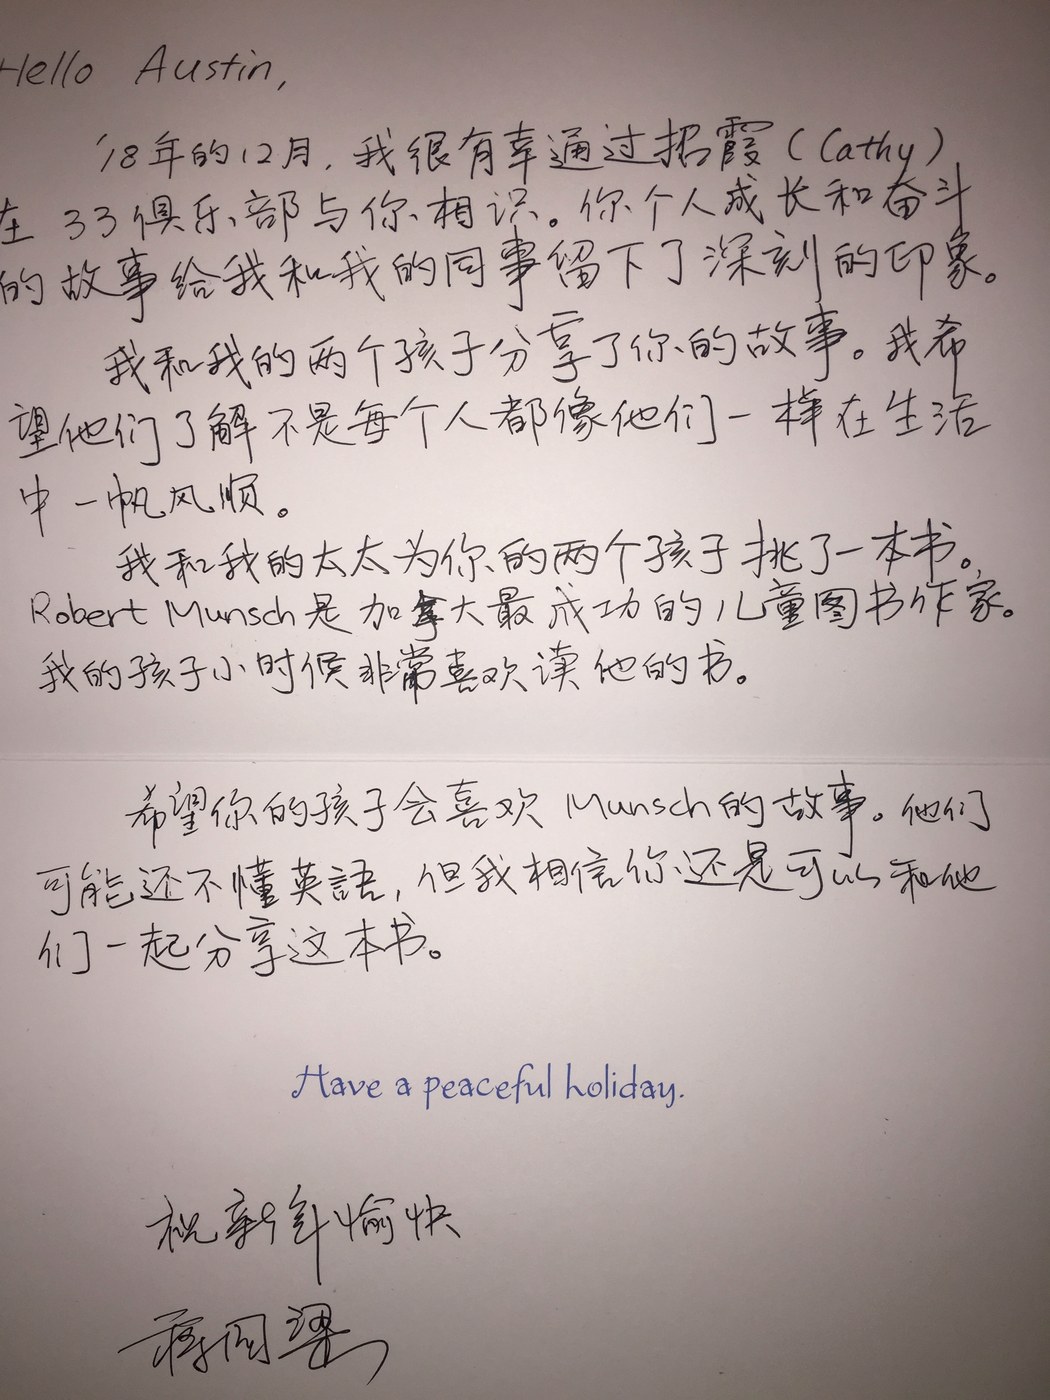 Hello Austin,
'18年的12月，我很有幸通过招霞（Cathy）
在 33俱乐部与你相识。你个人成长和奋斗
的故事给我和我的同事留下了深刻的印象。
我和我的两个孩子分享了你的故事。我希
望他们了解不是每个人都像他们一样在生活
中一帆风顺。
我和我的太太为你的两个孩子挑了一本书。
Robert Munsch是加拿大最成功的儿童图书作家。
我的孩子小时候非常喜欢读他的书。
希望你的孩子会喜欢 Munsch的故事。他们
可能还不懂英語，但我相信你还是可以和他
们一起分享这本书。
Have a peaceful holiday.
祝新年愉快